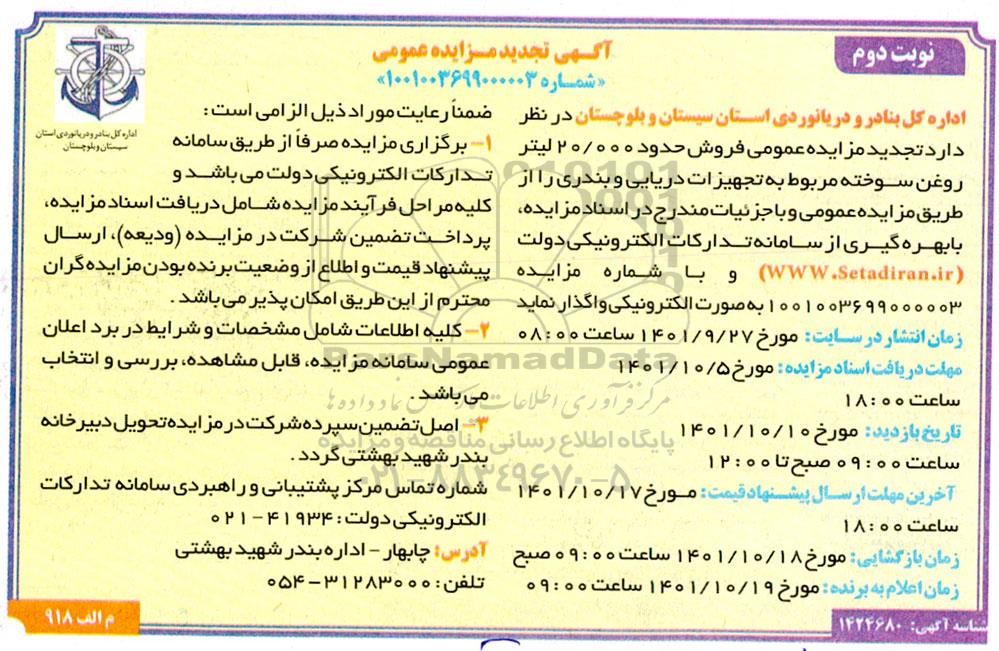 نوبت دوم
آگهی تجدید مزایده عمومی
«شماره ۱۰۰۱۰۰۳۶۹۹۰۰۰۰۰۳»
اداره کل بنادر و دریانوردی استان
سیستان و بلوچستان
اداره کل بنادر و دریانوردی استان سیستان و بلوچستان در نظر
دارد تجدید مزایده عمومی فروش حدود ۲۰/۰۰۰ لیتر
روغن سوخته مربوط به تجهیزات دریایی و بندری را از
طریق مزایده عمومی و با جزئیات مندرج در اسناد مزایده،
با بهره گیری از سامانه تدارکات الکترونیکی دولت
(WWW.Setadiran.ir) و با شماره مزایده
۱۰۰۱۰۰۳۶۹۹۰۰۰۰۰۳ به صورت الکترونیکی واگذار نماید
زمان انتشار در سایت: مورخ ۱۴۰۱/۹/۲۷ ساعت ۰۸:۰۰
مهلت دریافت اسناد مزایده: مورخ ۱۴۰۱/۱۰/۵
ساعت ۱۸:۰۰
تاریخ بازدید: مورخ ۱۴۰۱/۱۰/۱۰
ساعت ۰۹:۰۰ صبح تا ۱۲:۰۰
آخرین مهلت ارسال پیشنهاد قیمت: مورخ ۱۴۰۱/۱۰/۱۷
ساعت ۱۸:۰۰
زمان بازگشایی: مورخ ۱۴۰۱/۱۰/۱۸ ساعت ۰۹:۰۰ صبح
زمان اعلام به برنده: مورخ ۱۴۰۱/۱۰/۱۹ ساعت ۰۹:۰۰
ضمناً رعایت موراد ذیل الزامی است:
۱- برگزاری مزایده صرفاً از طریق سامانه
تدارکات الکترونیکی دولت می باشد و
کلیه مراحل فرآیند مزایده شامل دریافت اسناد مزایده،
پرداخت تضمین شرکت در مزایده (ودیعه)، ارسال
پیشنهاد قیمت و اطلاع از وضعیت برنده بودن مزایده گران
محترم از این طریق امکان پذیر می باشد.
۲- کلیه اطلاعات شامل مشخصات و شرایط در برد اعلان
عمومی سامانه مزایده، قابل مشاهده، بررسی و انتخاب
می باشد.
۳- اصل تضمین سپرده شرکت در مزایده تحویل دبیرخانه
بندر شهید بهشتی گردد.
شماره تماس مرکز پشتیبانی و راهبردی سامانه تدارکات
الکترونیکی دولت: ۴۱۹۳۴-۰۲۱
آدرس: چابهار - اداره بندر شهید بهشتی
تلفن: ۳۱۲۸۳۰۰۰-۰۵۴
ParsNamadData
پایگاه اطلاع رسانی مناقصه و مزایده
۰۲۱-۸۸۳۴۹۶۷۰-۵
شناسه آگهی: ۱۴۲۴۶۸۰
م الف ۹۱۸